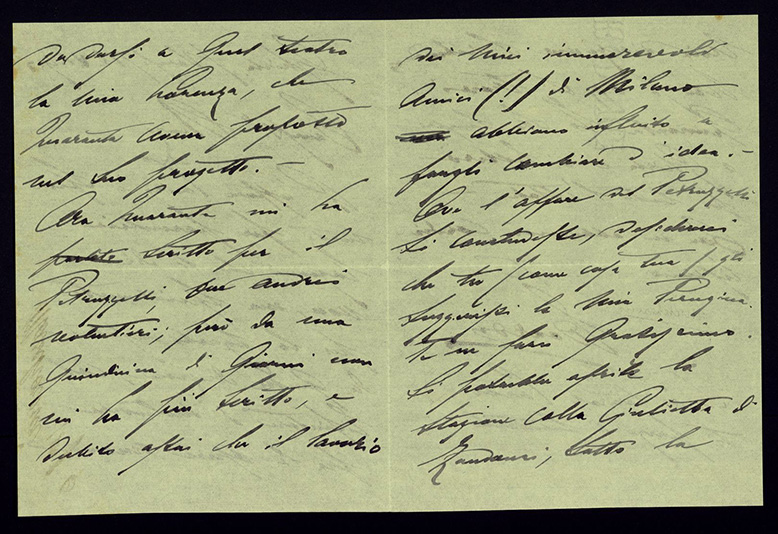 da darsi a quel teatro
la mia Parenza, che
Quaranta aveva promesso
nel suo progetto. –
Ora Quaranta mi ha
scritto per il
Petruzzelli, ove andrei
volentieri; però da una
quindicina di giorni non
mi ha più scritto, e
dubito assai che il lavorio
dei miei innumerevoli
Amici (!) di Milano
abbiano influito a
fargli cambiare d'idea. –
Ove l'affare del Petruzzelli
si concludesse, desidererei
che tu, come cosa tua, gli
suggerissi la mia
Te ne sarei gratissimo.
Si potrebbe aprire la
stagione colla Giulietta di
Zandonai, sotto la